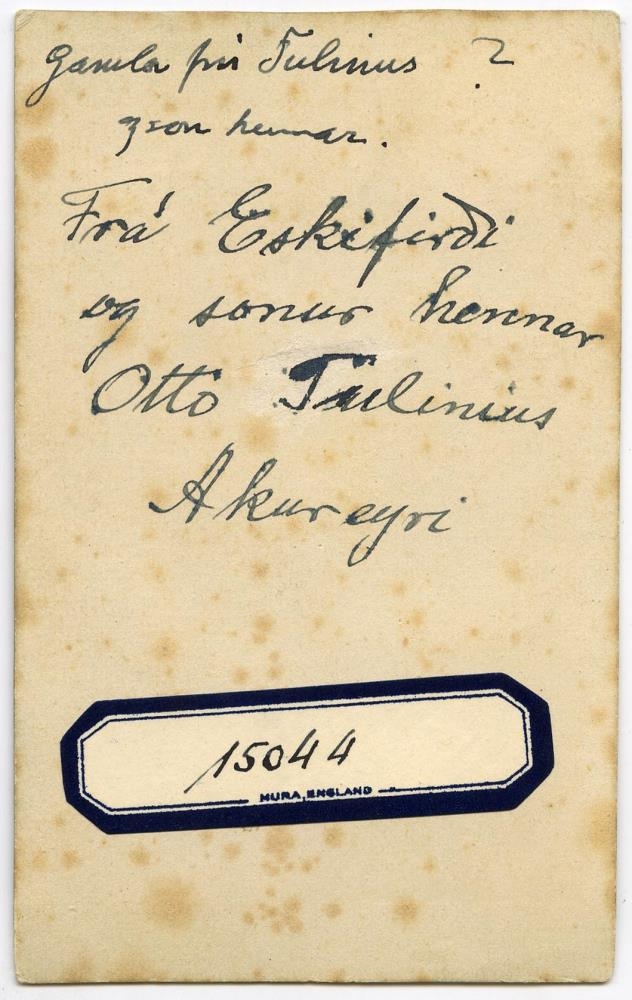 Gamla frú Tulinius ?
og son hennar.
Frá Eskifirði
og sonur hennar
Otto Tulinius
Akureyri
15044
MURA, ENGLAND